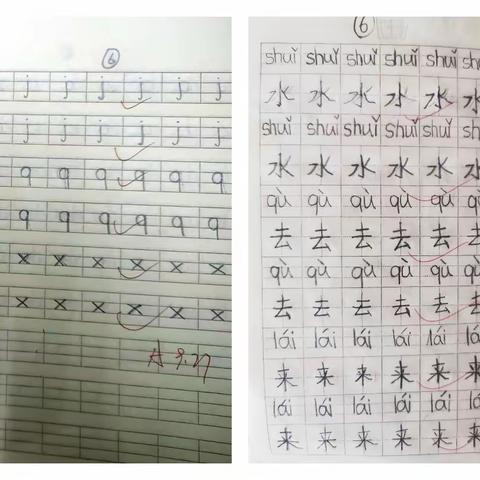 ⑥
j j j j j j
j j j j j j
q q q q q q
q q q q q q
x x x x x x
x x x x x x
A 9.27
⑥
shuǐ shuǐ shuǐ shuǐ shuǐ shuǐ
水 水 水 水 水 水
shuǐ shuǐ shuǐ shuǐ shuǐ shuǐ
水 水 水 水 水 水
qù qù qù qù qù qù
去 去 去 去 去 去
qù qù qù qù qù qù
去 去 去 去 去 去
lái lái lái lái lái lái
来 来 来 来 来 来
lái lái lái lái lái lái
来 来 来 来 来 来